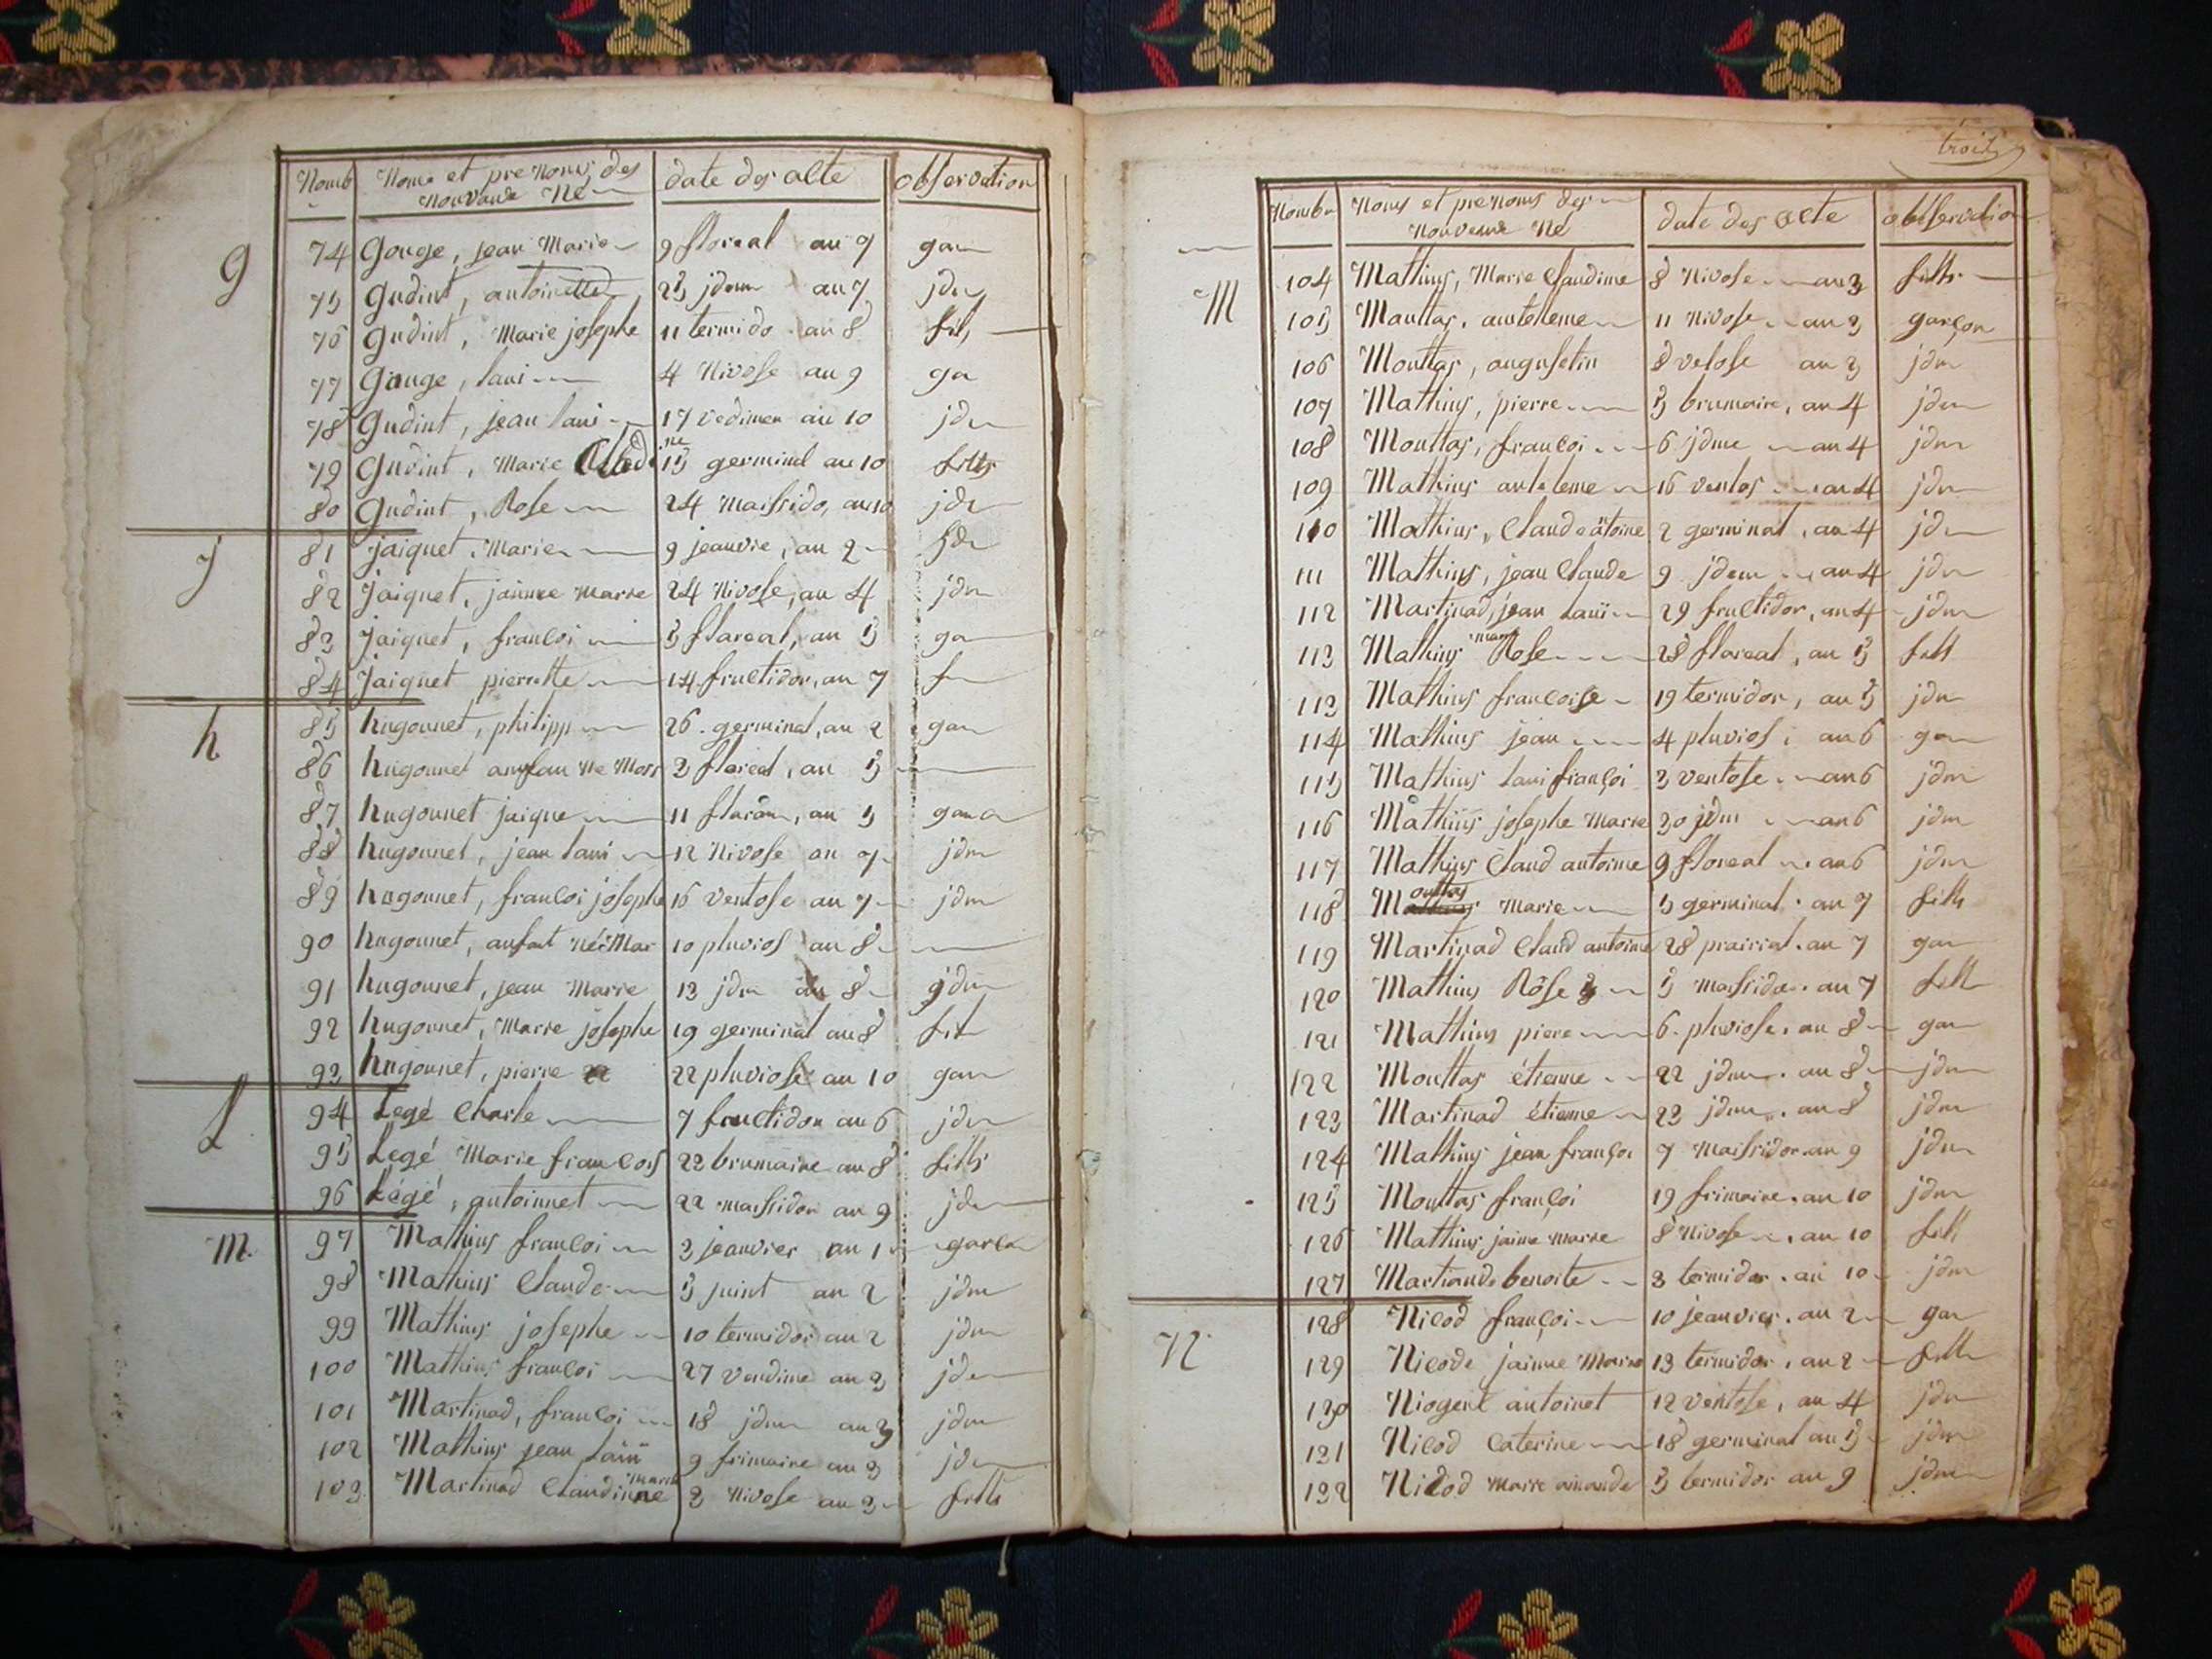 Nomb Noms et prenoms des nouvaux né date des acte observation
g
74 gouge, jean Marie 9 floreal an 7 gar
75 gudint, antoinette 25 jdem an 7 jdm
76 gudint, Marie josephe 11 termido an 8 fill
77 gouge, laui 4 Nivose an 9 ga
78 gudint, jean laui 17 vedimer an 10 jdm
79 gudint, Marie 15 germinal an 10 fille
80 gudint, Rose 24 Maissido, an 10 jdm
j
81 jaiquet, Marie 9 jeanvie, an 2 jdm
82 jaiquet, jainne Marie 24 Nivose, an 4 jdm
83 jaiquet, francoi 5 flareal, an 5 ga
84 jaiquet pierrette 14 fructidor, an 7 f
h
85 hugonnet, philipp 26 germinal, an 2 gar
86 hugonnet anfan ne Mors 3 floreal, an 5
87 hugonnet jaique 11 an 5 gar
88 hugonnet, jean laui 12 Nivose an 7 jdm
89 hugonnet, francoi josephe 16 ventose an 7 jdm
90 hugonnet, anfat né Mar 10 pluvios an 8
91 hugonnet, jean Marie 13 jdm an 8 jdm
92 hugonnet, Marie josephe 19 germinal an 8 fill
93 hugonnet, pierre 22 pluviose an 10 gar
L
94 Legé Charle 7 fructidor an 6 jdm
95 Legé Marie francois 22 brumaire an 8 fille
96 Légé, antoinnet 22 maissidor an 9 jdm
M
97 Mathius francoi 3 jeanvier an 1 garcon
98 Mathius Claude 5 juint an 2 jdm
99 Mathius josephe 10 termidor an 2 jdm
100 Mathius francoi 27 vendime an 3 jdm
101 Martinad, francoi 18 jdm an 3 jdm
102 Mathius jean laui 9 frimaire an 3 jdm
103 Martinad Claudinne Marie 3 Nivose an 3 fille
trois
Nombr Noms et prenoms des nouveaux né date des acte observation
M
104 Mathius, Marie Claudine 8 Nivose an 3 fille
105 Mauttas, anteleme 11 Nivose an 3 garçon
106 Mouttas, augustin 8 vetose an 3 jdm
107 Mathius, pierre 5 brumaire, an 4 jdm
108 Mouttas, francoi 6 jdme an 4 jdm
109 Mathius anteleme 16 ventos an 4 jdm
110 Mathius, Claude atoine 2 germinal, an 4 jdm
111 Mathius, jean Claude 9 jdem an 4 jdm
112 Martinad, jean laui 29 fructidor, an 4 jdm
113 Mathius Marie Rose 28 flareal, an 5 fill
113 Mathius francoise 19 termidor, an 5 jdm
114 Mathius jean 4 pluvios, an 6 gar
115 Mathius laui françoi 3 ventose an 6 jdm
116 Mathius josephe Marie 30 jdm an 6 jdm
117 Mathius Claud antoine 9 floreal an 6 jdm
118 Mouttas Marie 5 germinal an 7 fille
119 Martinad Claud antoine 28 prairial an 7 gar
120 Mathius Rose 5 Maissido an 7 fill
121 Mathius piere 6 pluviose, an 8 gar
122 Mouttas étienne 22 jdm an 8 jdm
123 Martinad étienne 23 jdm an 8 jdm
124 Mathius jean françoi 7 Maissidor an 9 jdm
125 Mouttas françoi 19 frimaire, an 10 jdm
126 Mathius jaine Marie 8 Nivose, an 10 fill
127 benoite 3 termidor, an 10 jdm
N
128 Nicod françoi 10 jeanvier, an 2 gar
129 Nicode jainne Marie 13 termidor, an 2 fille
130 antoinet 12 ventose, an 4 jdm
131 Nicod Caterine 18 germinal an 5 jdm
132 Nicod Marie amande 5 termidor an 9 jdm